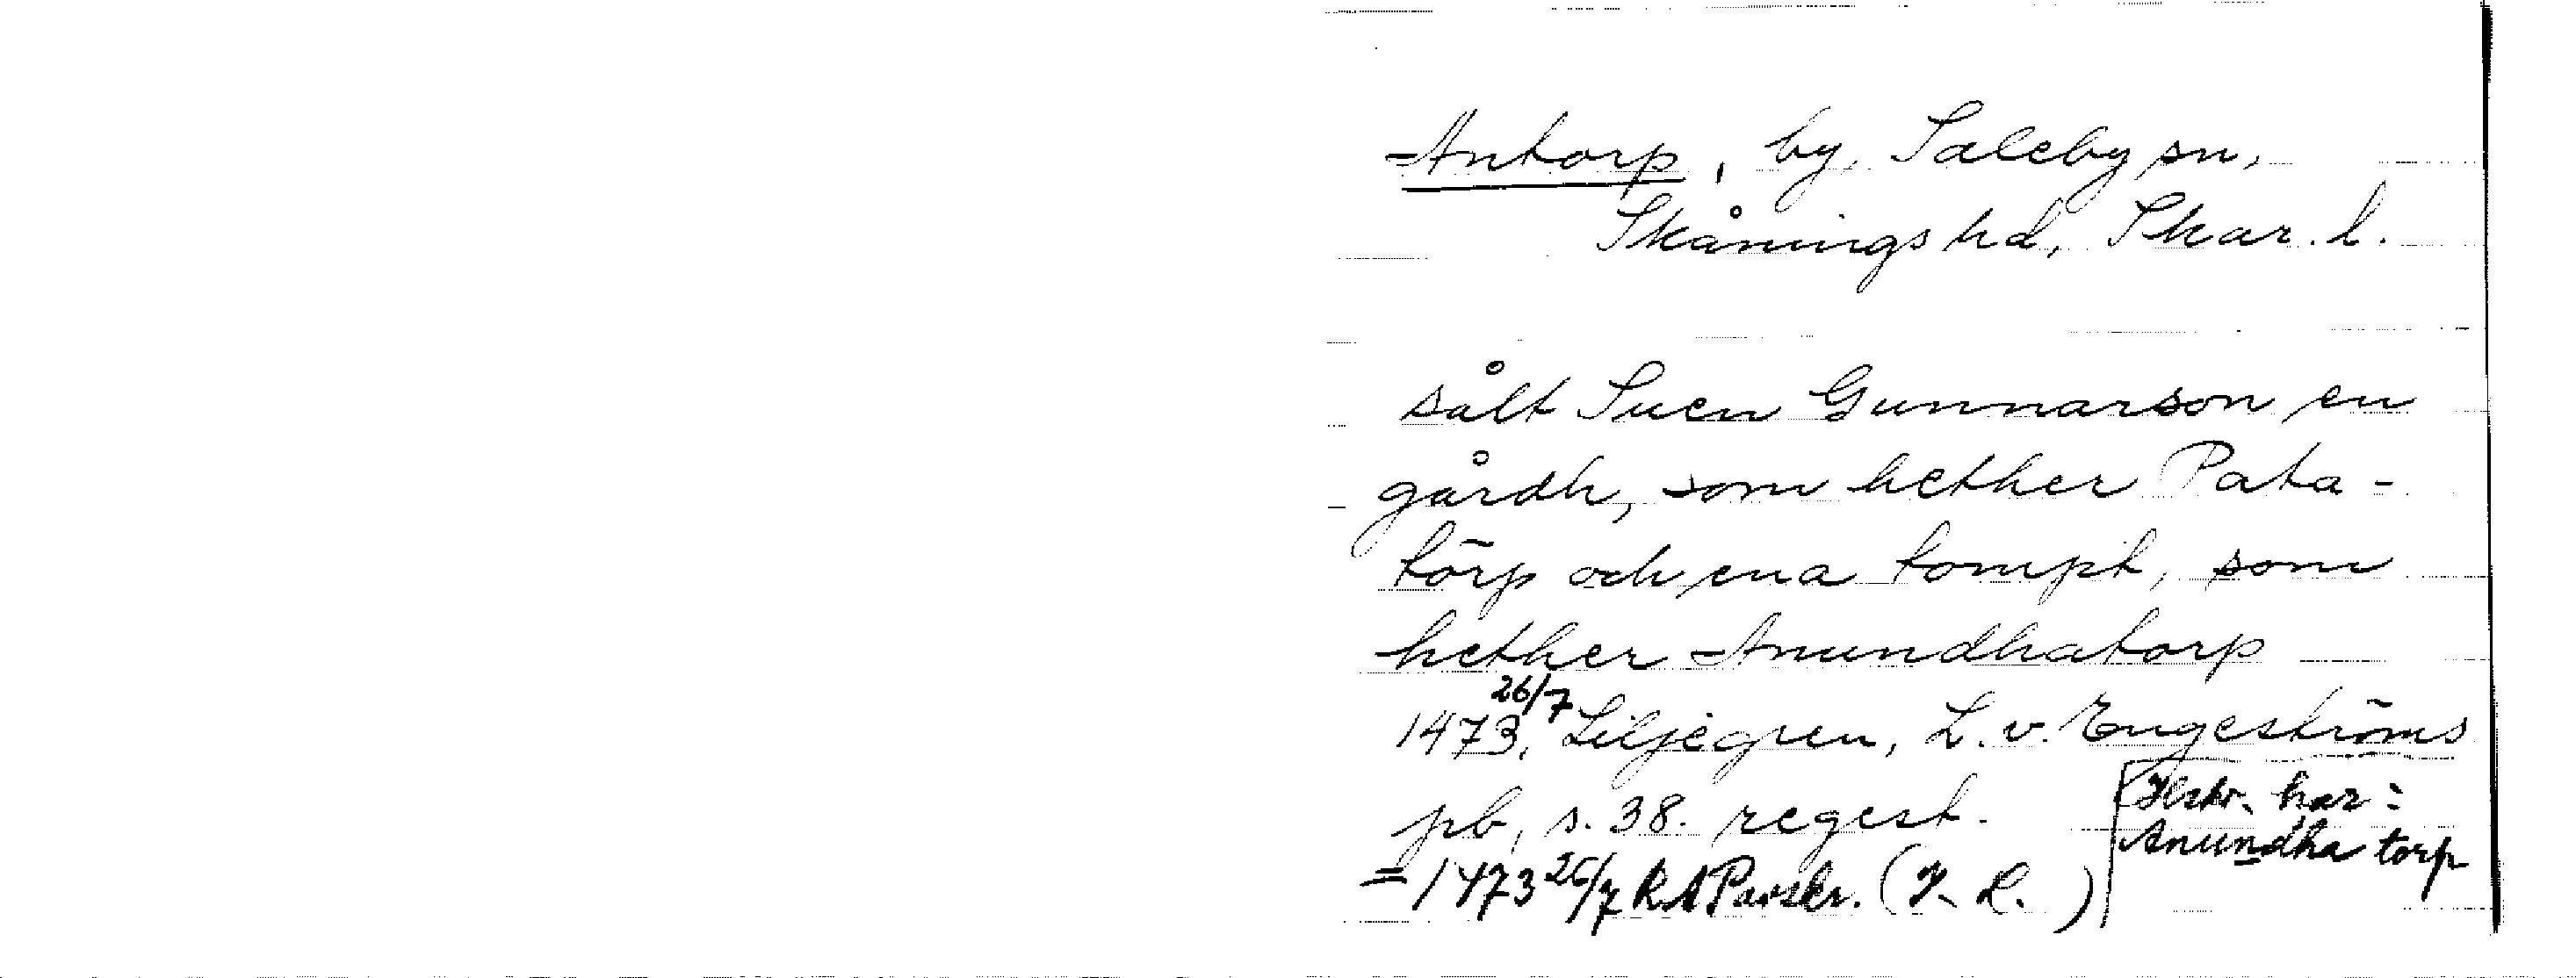 Antorp, by, Saleby sn,
Skånings hd, Skar. l.
sålt Suen Gunnarson en
gårdh, som hether Pata-
törp och ena tompt, som
hether Anundhatorp
1473 26/7, Liljegren, L. v. Engeströms
pb, s. 38. regest.
Hskr. har:
Anundha torp
= 1473 26/7 RA Pavskr. (